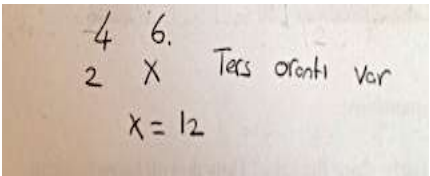 4 6.
2 X Ters orantı var
X = 12